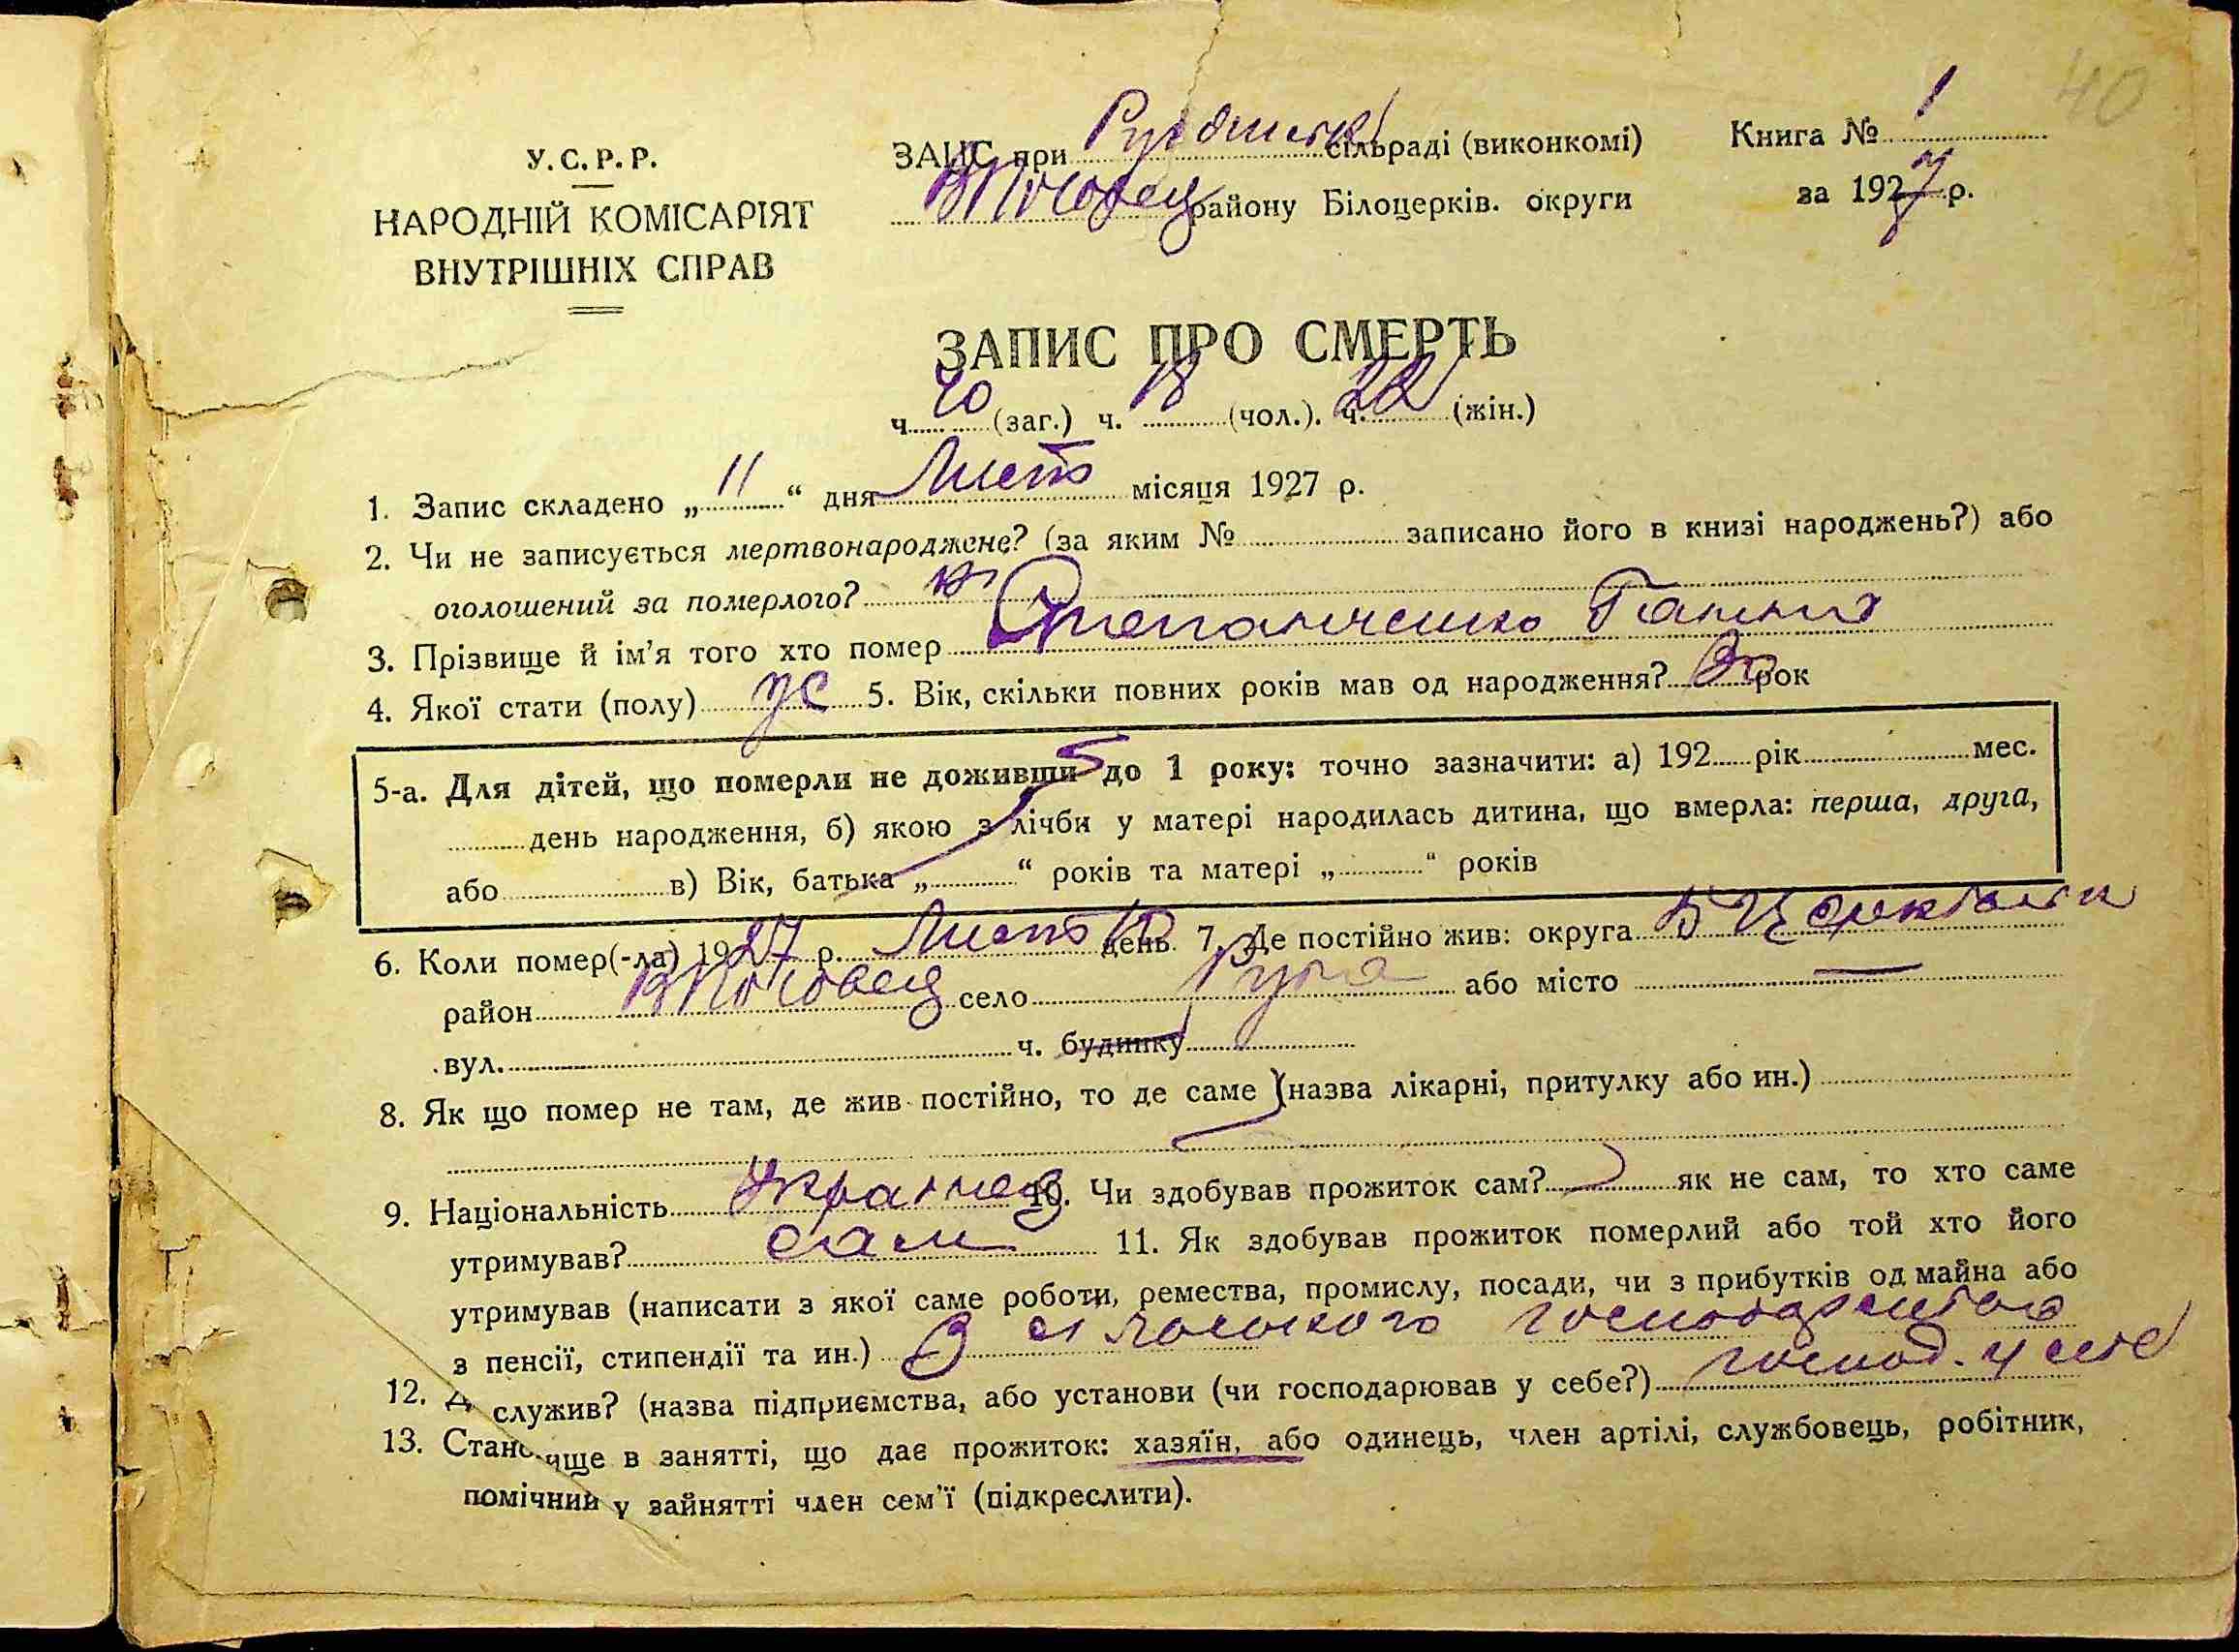 40
У.С.Р.Р.
НАРОДНІЙ КОМІСАРІЯТ
ВНУТРІШНІХ СПРАВ
ЗАЦС при сільраді (виконкомі)
району Білоцерків. округи
Книга № 1
за 1927 р.
ЗАПИС ПРО СМЕРТЬ
ч. 40 (заг.) ч. 18 (чол.). ч. 22 (жін.)
1. Запис складено „ 11 “ дня Листо місяця 1927 р.
2. Чи не записується мертвонароджене? (за яким № записано його в книзі народжень?) або
оголошений за померлого?
3. Прізвище й ім’я того хто помер Степанченко Ганна
4. Якої стати (полу) ж 5. Вік, скільки повних років мав од народження? рок
5-а. Для дітей, що померли не доживши до 1 року: точно зазначити: а) 192 рік мес.
день народження, б) якою з лічби у матері народилась дитина, що вмерла: перша, друга,
або в) Вік, батька „ “ років та матері „ “ років
6. Коли помер(-ла) 1927 р. Листо 10 день 7. Де постійно жив: округа Б Церківська
район село Руда або місто —
вул. ч. будинку
8. Як що помер не там, де жив постійно, то де саме (назва лікарні, притулку або ин.)
9. Національність Украінец 10. Чи здобував прожиток сам? як не сам, то хто саме
утримував? сам 11. Як здобував прожиток померлий або той хто його
утримував (написати з якої саме роботи, ремества, промислу, посади, чи з прибутків од майна або
з пенсії, стипендії та ин.) З сільського господарства
12. Д служив? (назва підприємства, або установи (чи господарював у себе?) господ. у себе
13. Становище в занятті, що дає прожиток: хазяїн, або одинець, член артілі, службовець, робітник,
помічний у зайнятті член сем’ї (підкреслити).